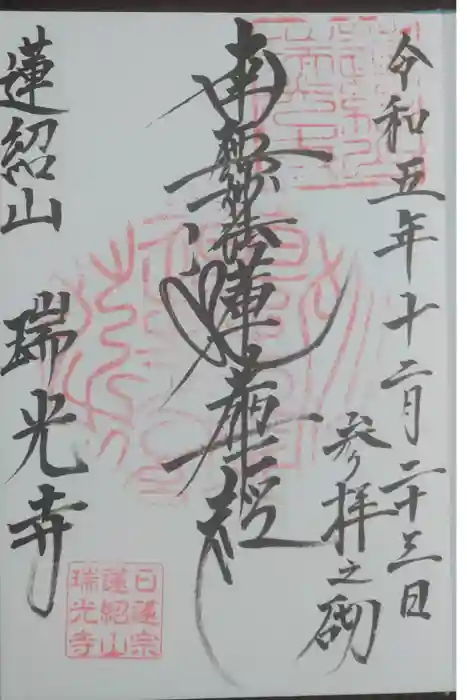 令和五年十二月二十三日
参り拝之砌
南無妙法蓮華経
蓮紹山 瑞光寺
日蓮宗
蓮紹山
瑞光寺